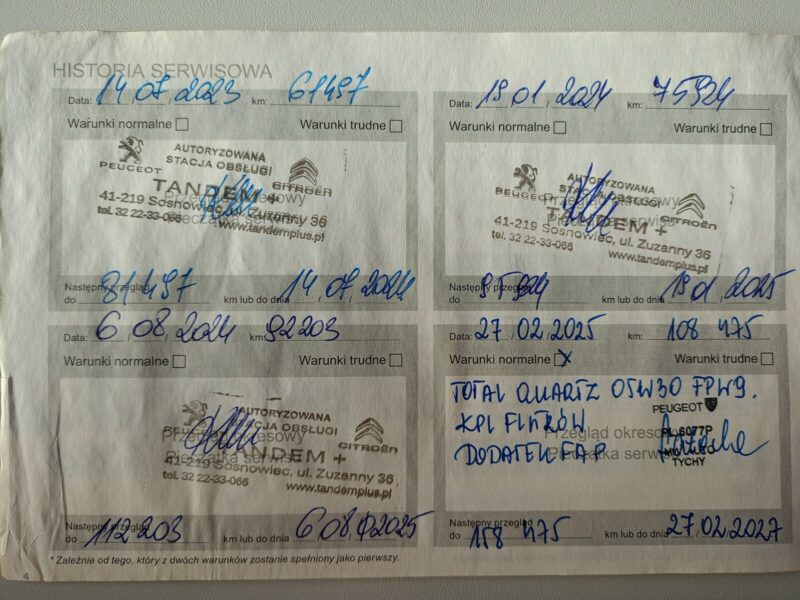 HISTORIA SERWISOWA
Data: 14.07.2023 km: 61497
Warunki normalne Warunki trudne
AUTORYZOWANA
STACJA OBSŁUGI
PEUGEOT CITROËN
TANDEM +
Przegląd okresowy
41-219 Sosnowiec, ul. Zuzanny 36
Pieczątka serwisu
tel. 32 22-33-066
www.tandemplus.pl
Następny przegląd
do 81497 km lub do dnia 14.07.2024
Data: 19.01.2024 km: 75924
Warunki normalne Warunki trudne
AUTORYZOWANA
STACJA OBSŁUGI
PEUGEOT CITROËN
Przegląd okresowy
TANDEM +
Pieczątka serwisu
41-219 Sosnowiec, ul. Zuzanny 36
tel. 32 22-33-066
www.tandemplus.pl
Następny przegląd
do 95924 km lub do dnia 19.01.2025
Data: 6.08.2024 km: 92203
Warunki normalne Warunki trudne
AUTORYZOWANA
STACJA OBSŁUGI
PEUGEOT CITROËN
Przegląd okresowy
TANDEM +
Pieczątka serwisu
41-219 Sosnowiec, ul. Zuzanny 36
tel. 32 22-33-066
www.tandemplus.pl
Następny przegląd
do 112203 km lub do dnia 6.08.2025
Data: 27.02.2025 km: 108 475
Warunki normalne x Warunki trudne
TOTAL QUARTZ 05W30 FPW9.
PEUGEOT
KPL FILTRÓW
PL 6077P
Przegląd okresowy
DODATEK FAP
Pieczątka serwisu
TYCHY
Następny przegląd
do 158 475 km lub do dnia 27.02.2027
* Zależnie od tego, który z dwóch warunków zostanie spełniony jako pierwszy.
4